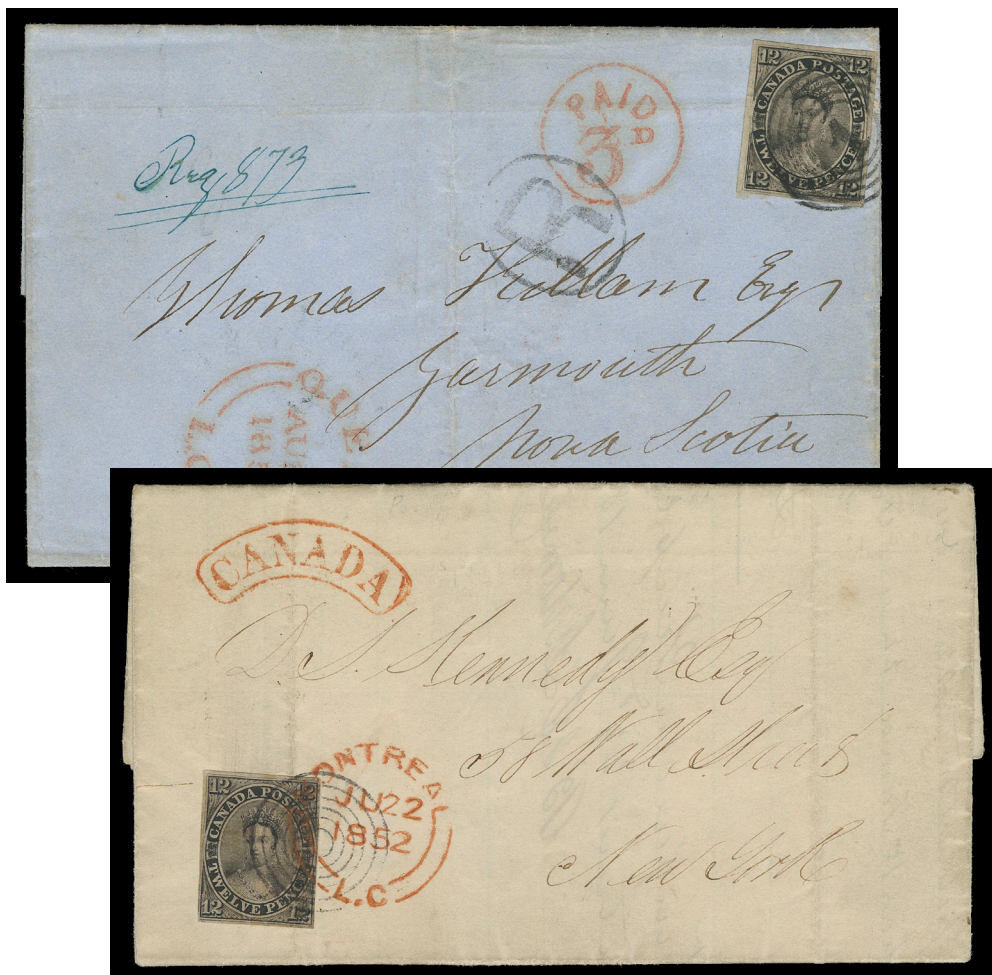 12 CANADA POSTAGE 12
TWELVE PENCE
12 12
PAID
3D
R
Reg 873
Thomas Killam Esqr
Yarmouth
Nova Scotia
QUE
AU
18
L.C
CANADA
D. S. Kennedy Esq
58 Wall Street
New York
MONTREAL
JU 22
1852
L.C
12 CANADA POSTAGE 12
TWELVE PENCE
12 12